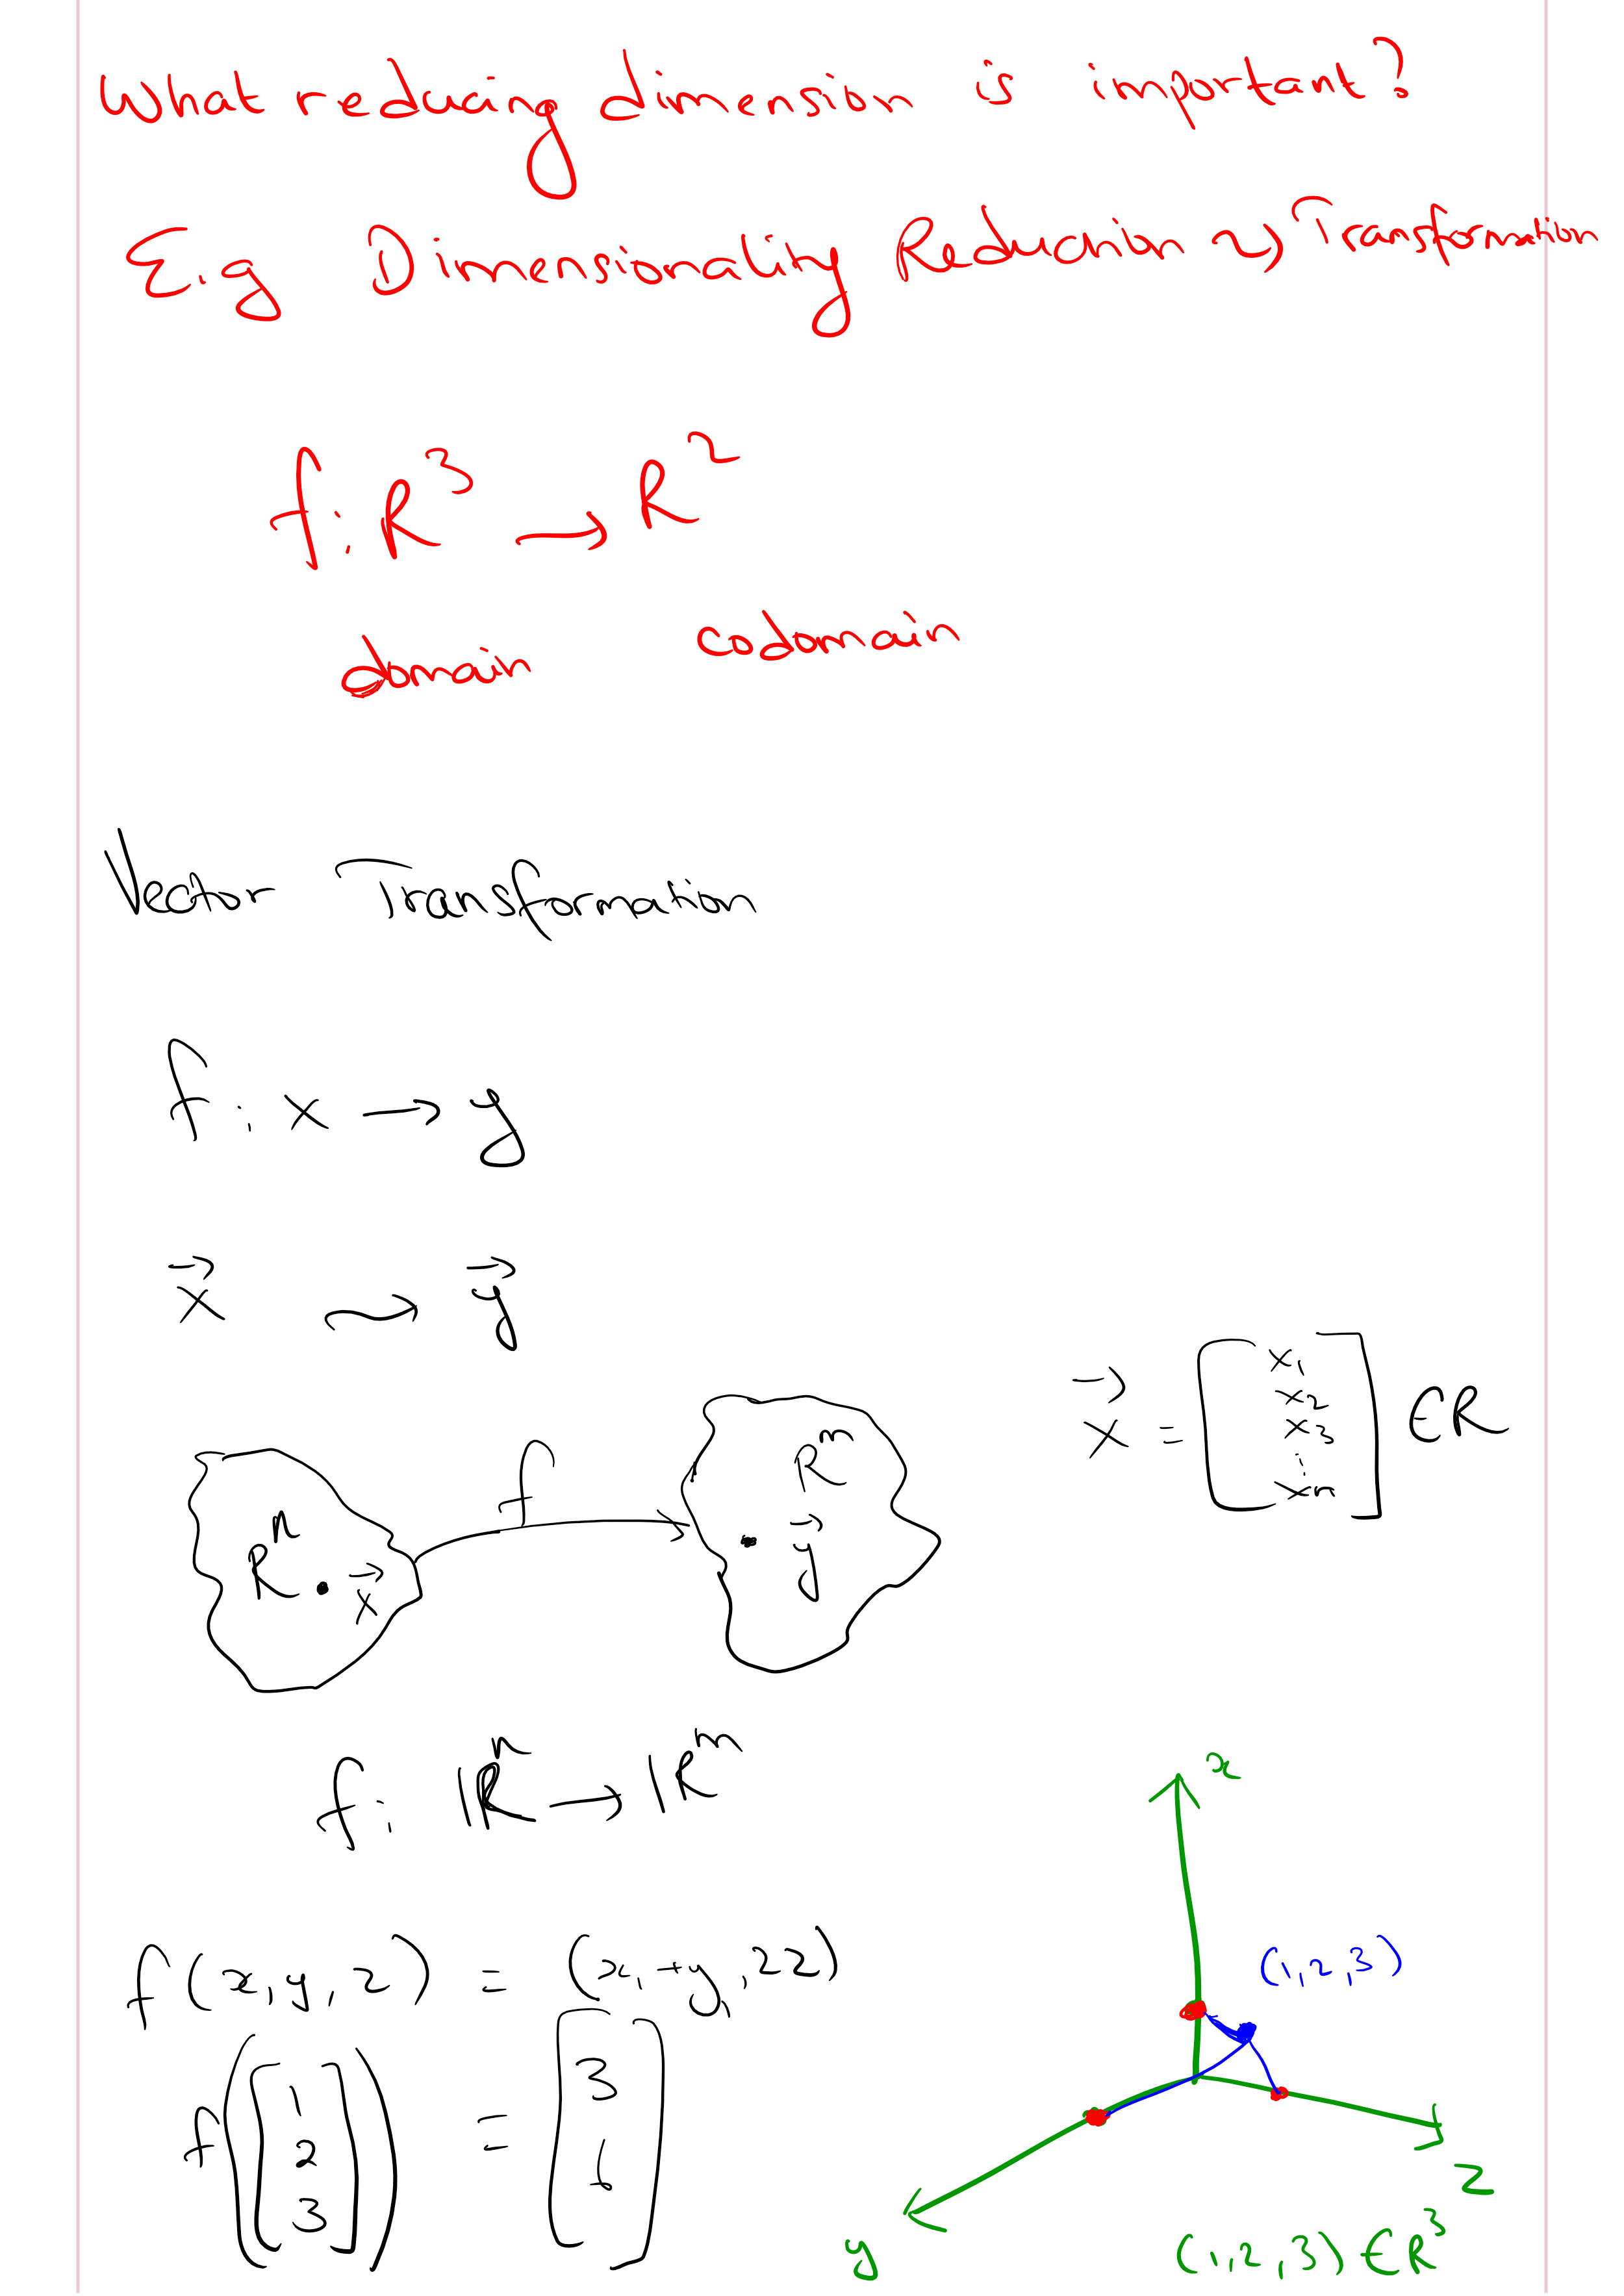 What reducing dimension is important?
E.g Dimensionaliny Reduction ~> Transformation
f: R³ → R²
domain codomain
Vector Transformation
f: x → y
x⃗ ⤳ y⃗
x⃗ = [x₁ x₂ x₃ ⋮ xₙ] ∈ R
f
Rⁿ . x⃗
Rᵐ . y⃗
f: ℝⁿ → ℝᵐ
x
f(x, y, z) = (x+y, 2z)
(1,2,3)
f([1 2 3]) = [3 6]
z
y
(1,2,3) ∈ R³